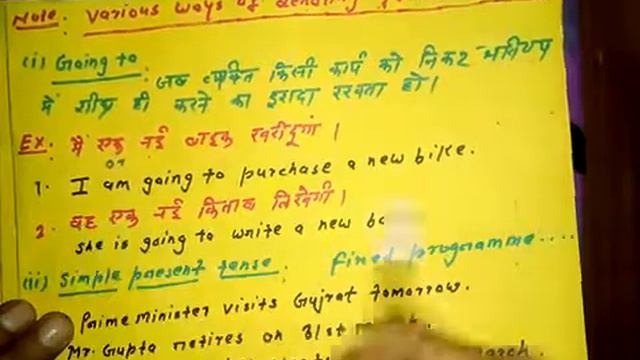 Note: Various ways of
(i) Going to : जब व्यक्ति किसी कार्य को निकट भविष्य
में शीघ्र ही करने का इरादा रखता हो।
Ex. मैं एक नई बाइक खरीदूगां।
or
1. I am going to purchase a new bike.
2. वह एक नई किताब लिखेगी।
she is going to write a new
(ii) Simple present tense : fixed programme....
Prime Minister visits Gujrat tomorrow.
Mr. Gupta retires on 31st